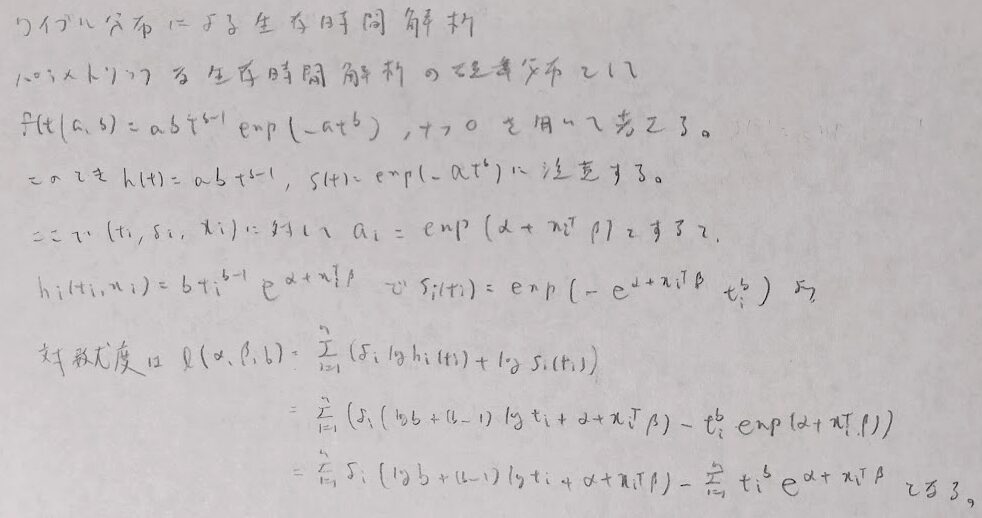 ワイブル分布による生存時間解析
パラメトリックな生存時間解析の確率分布として
f(t|a,b) = abt^{b-1} exp(-at^b), t>0 を用いて考える。
このとき h(t) = abt^{b-1}, S(t) = exp(-at^b) に注意する。
ここで (ti, δi, xi) に対して ai = exp(α + xi^T β) とすると、
hi(ti, xi) = bti^{b-1} e^{α+xi^T β} で Si(ti) = exp(-e^{α+xi^T β} ti^b) より
対数尤度は ℓ(α, β, b) = Σ_{i=1}^n (δi log hi(ti) + log Si(ti))
= Σ_{i=1}^n (δi (log b + (b-1) log ti + α + xi^T β) - ti^b exp(α + xi^T β))
= Σ_{i=1}^n δi (log b + (b-1) log ti + α + xi^T β) - Σ_{i=1}^n ti^b e^{α+xi^T β} となる。